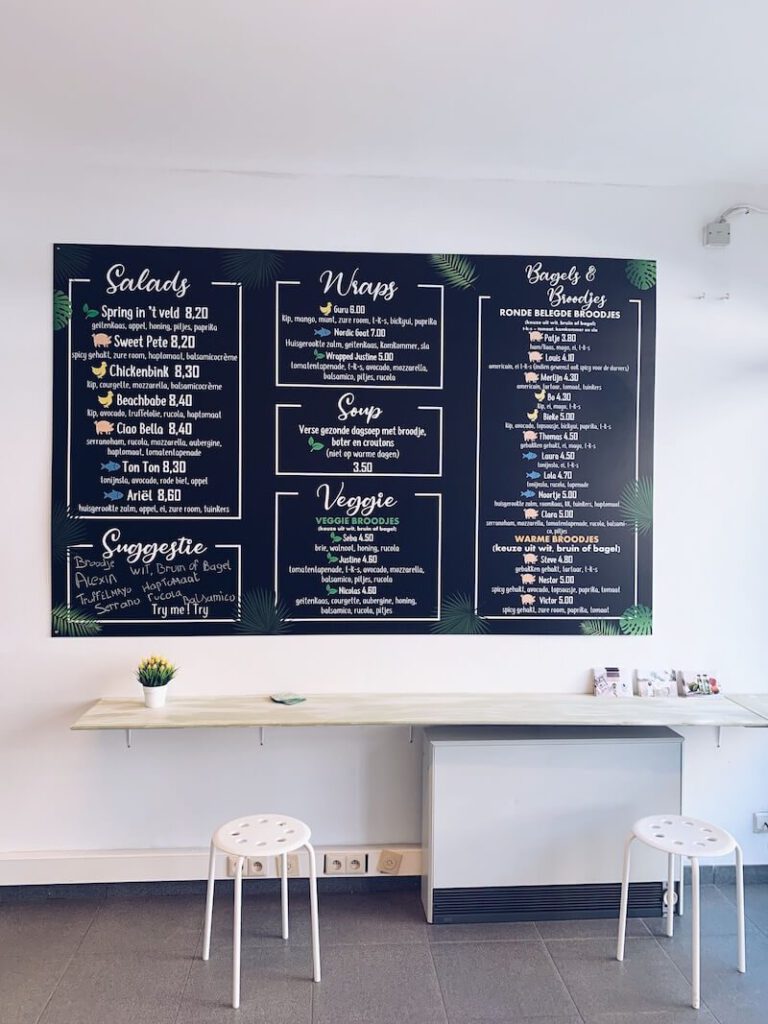 Salads
Spring in 't veld 8,20
geitenkaas, appel, honing, pitjes, paprika
Sweet Pete 8,20
spicy gehakt, zure room, haptomaat, balsamicocrème
Chickenbink 8,30
kip, courgette, mozzarella, balsamicocrème
Beachbabe 8,40
kip, avocado, truffelolie, rucola, haptomaat
Ciao Bella 8,40
serranoham, rucola, mozzarella, aubergine,
haptomaat, tomatentapenade
Ton Ton 8,30
tonijnsla, avocado, rode biet, appel
Ariël 8,60
huisgerookte zalm, appel, ei, zure room, tuinkers
Suggestie
Broodje wit, Bruin of Bagel
ALEXIA
Truffelmayo Haptomaat
Serrano rucola Balsamico
Try me! Try
Wraps
Guru 6.00
kip, mango, munt, zure room, t-k-s, bickyui, paprika
Nordic Goat 7.00
Huisgerookte zalm, geitenkaas, komkommer, sla
Wrapped Justine 5.00
tomatentapenade, t-k-s, avocado, mozzarella,
balsamico, pitjes, rucola
Soup
Verse gezonde dagsoep met broodje,
boter en croutons
(niet op warme dagen)
3.50
Veggie
VEGGIE BROODJES
(keuze uit wit, bruin of bagel)
Seba 4.50
brie, walnoot, honing, rucola
Justine 4.60
tomatentapenade, t-k-s, avocado, mozzarella,
balsamico, pitjes, rucola
Nicolas 4.60
geitenkaas, courgette, aubergine, honing,
balsamico, rucola, pitjes
Bagels &
Broodjes
RONDE BELEGDE BROODJES
(keuze uit wit, bruin of bagel)
t-k-s = tomaat, komkommer en sla
Patje 3.80
ham/kaas, mayo, ei, t-k-s
Louis 4.10
americain, ei t-k-s (indien gewenst ook spicy voor de durvers)
Merlijn 4.30
americain, tartaar, tomaat, tuinkers
Bo 4.30
kip, ei, mayo, t-k-s
Bieke 5.00
kip, avocado, lapsausje, bickyui, paprika, t-k-s
Thomas 4.50
gebakken gehakt, ei, mayo, t-k-s
Laura 4.50
tonijnsla, ei, t-k-s
Lola 4.70
tonijnsla, rucola, tapenade
Noortje 5.00
huisgerookte zalm, roomkaas, ui, tuinkers, haptomaat
Clara 5.00
serranoham, mozzarella, tomatentapenade, rucola, balsami-
co, pitjes
WARME BROODJES
(keuze uit wit, bruin of bagel)
Steve 4.80
gebakken gehakt, tartaar, t-k-s
Nestor 5.00
spicy gehakt, avocado, lapsausje, paprika, t-k-s
Victor 5.00
spicy gehakt, zure room, paprika, tomaat